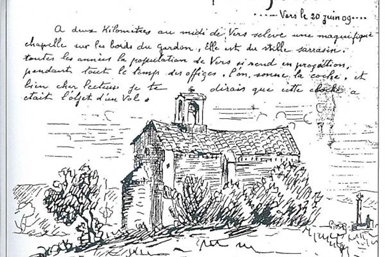 Vers le 20 juin 09
A deux Kilomètres au midi de Vers s'elève une magnifique
chapelle sur les bords du gardon, Elle est du stille sarrasin.
toutes les années la population de Vers s'i rend en procession,
pendant tout le temps des offices, l'on sonne la coche, et
bien cher lecteur je te dirais que cette cloche a
était l'objet d'un Vol.